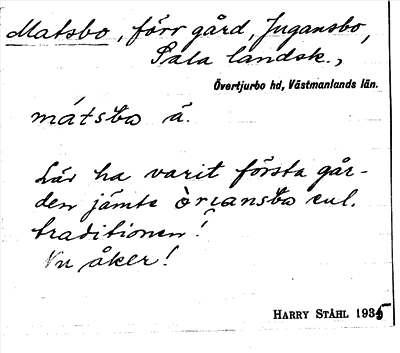 Matsbo, förr gård, Jugansbo,
Sala landsk.,
Övertjurbo hd, Västmanlands län.
mátsbω ä.
Lär ha varit första går-
den jämte òrιansbω enl.
traditionen!
Nu åker!
HARRY STÅHL 1935